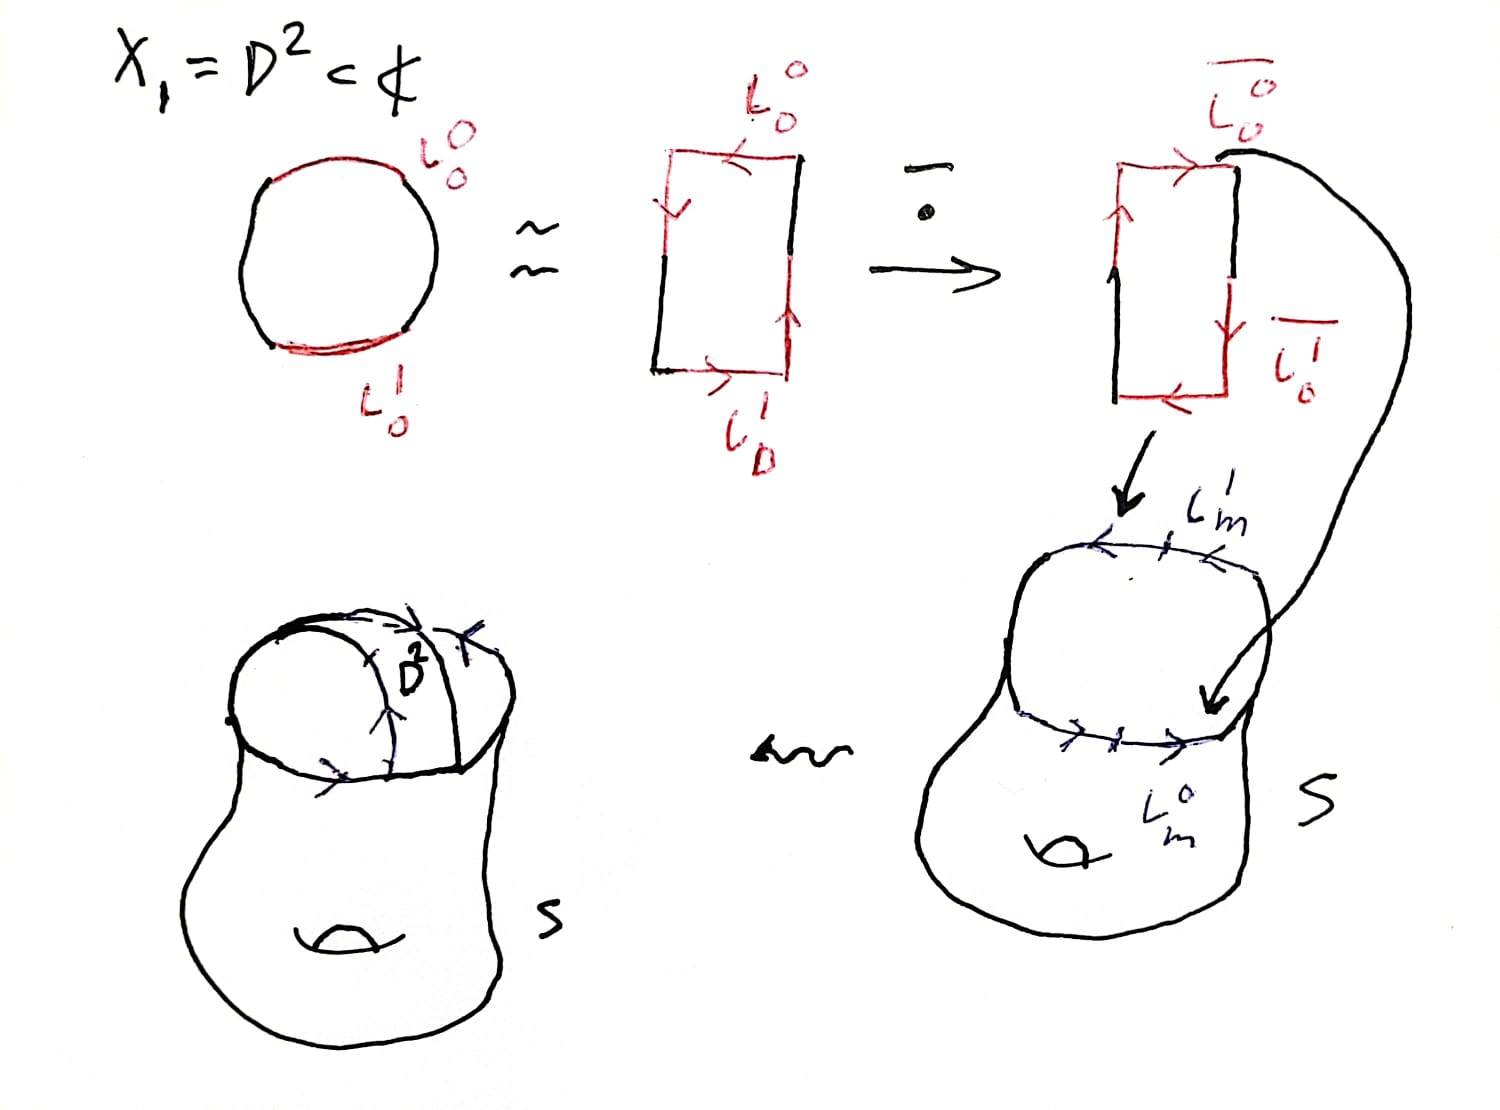 X₁ = D² ⊂ ₵
L₀⁰
L₀¹
≈
L₀⁰
L_D¹
→
\overline{L₀⁰}
\overline{L₀¹}
L_m¹
L_m⁰
S
D²
S